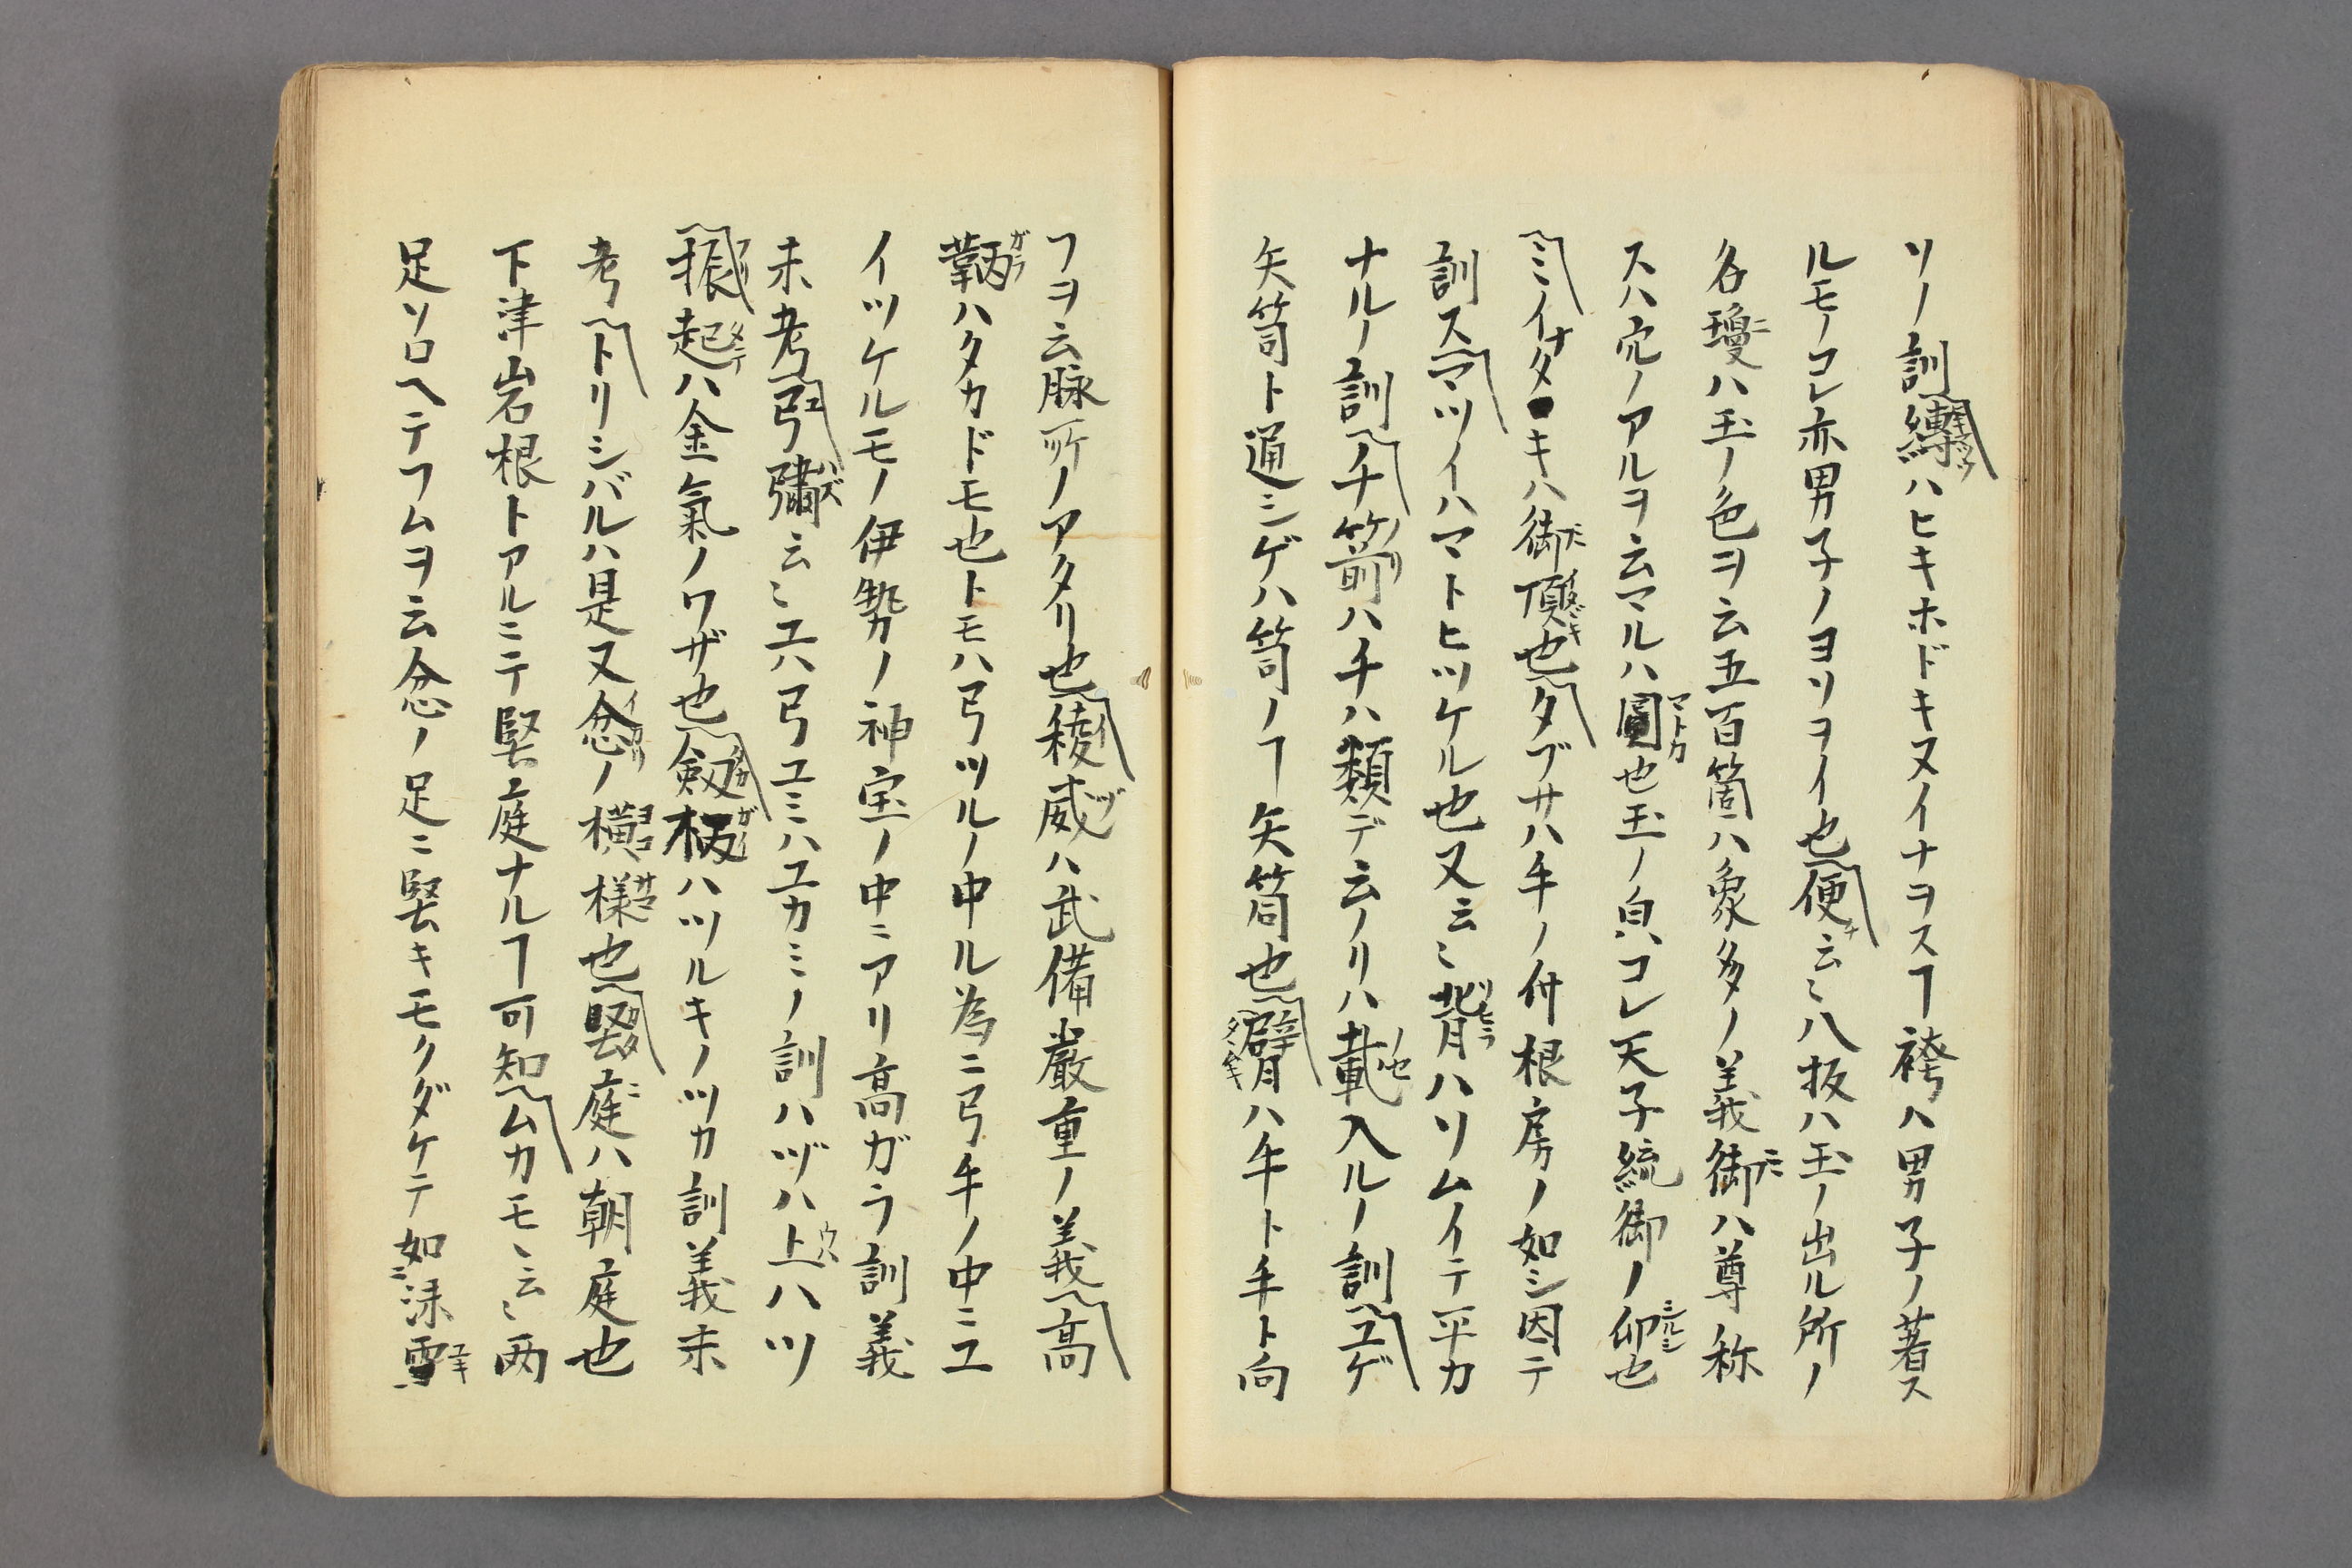 ソノ訓縳ハヒキホドキヌイナヲスヿ袴ハ男子ノ著ス
ルモノコレ亦男子ノヨソヲイ也便云〻八坂ハ玉ノ出ル所ノ
名瓊ハ玉ノ色ヲ云五百箇ハ象多ノ義御ハ尊称
スハ穴ノアルヲ云マルハ圓也玉ノ貟コレ天子統御ノ印也
ミイナダキハ御頂也タブサハ手ノ付根房ノ如シ因テ
訓スマツイハマトヒツケル也又云〻背ハソムイテ平カ
ナルノ訓チ箭ハチハ類デ云ノリハ載入ルノ訓ユゲ
矢笥ト通シゲハ笥ノヿ矢筒也臂ハ手ト手ト向
フヲ云脉所ノアタリ也稜威ハ武備嚴重ノ義高
鞆ハタカドモ也トモハ弓ツルノ中ル為ニ弓手ノ中ニユ
イツケルモノ伊勢ノ神宝ノ中ニアリ高ガラ訓義
未考弓彇云〻ユハ弓ユミハユカミノ訓ハヅハ上ハツ
振起ハ金氣ノワザ也剱柄ハツルキノツカ訓義未
考トリシバルハ是又忿ノ横様也堅庭ハ朝庭也
下津岩根トアルニテ堅庭ナルヿ可知ムカモヽ云〻両
足ソロヘテフムヲ云忿ノ足ニ堅キモクダケテ如沫雪